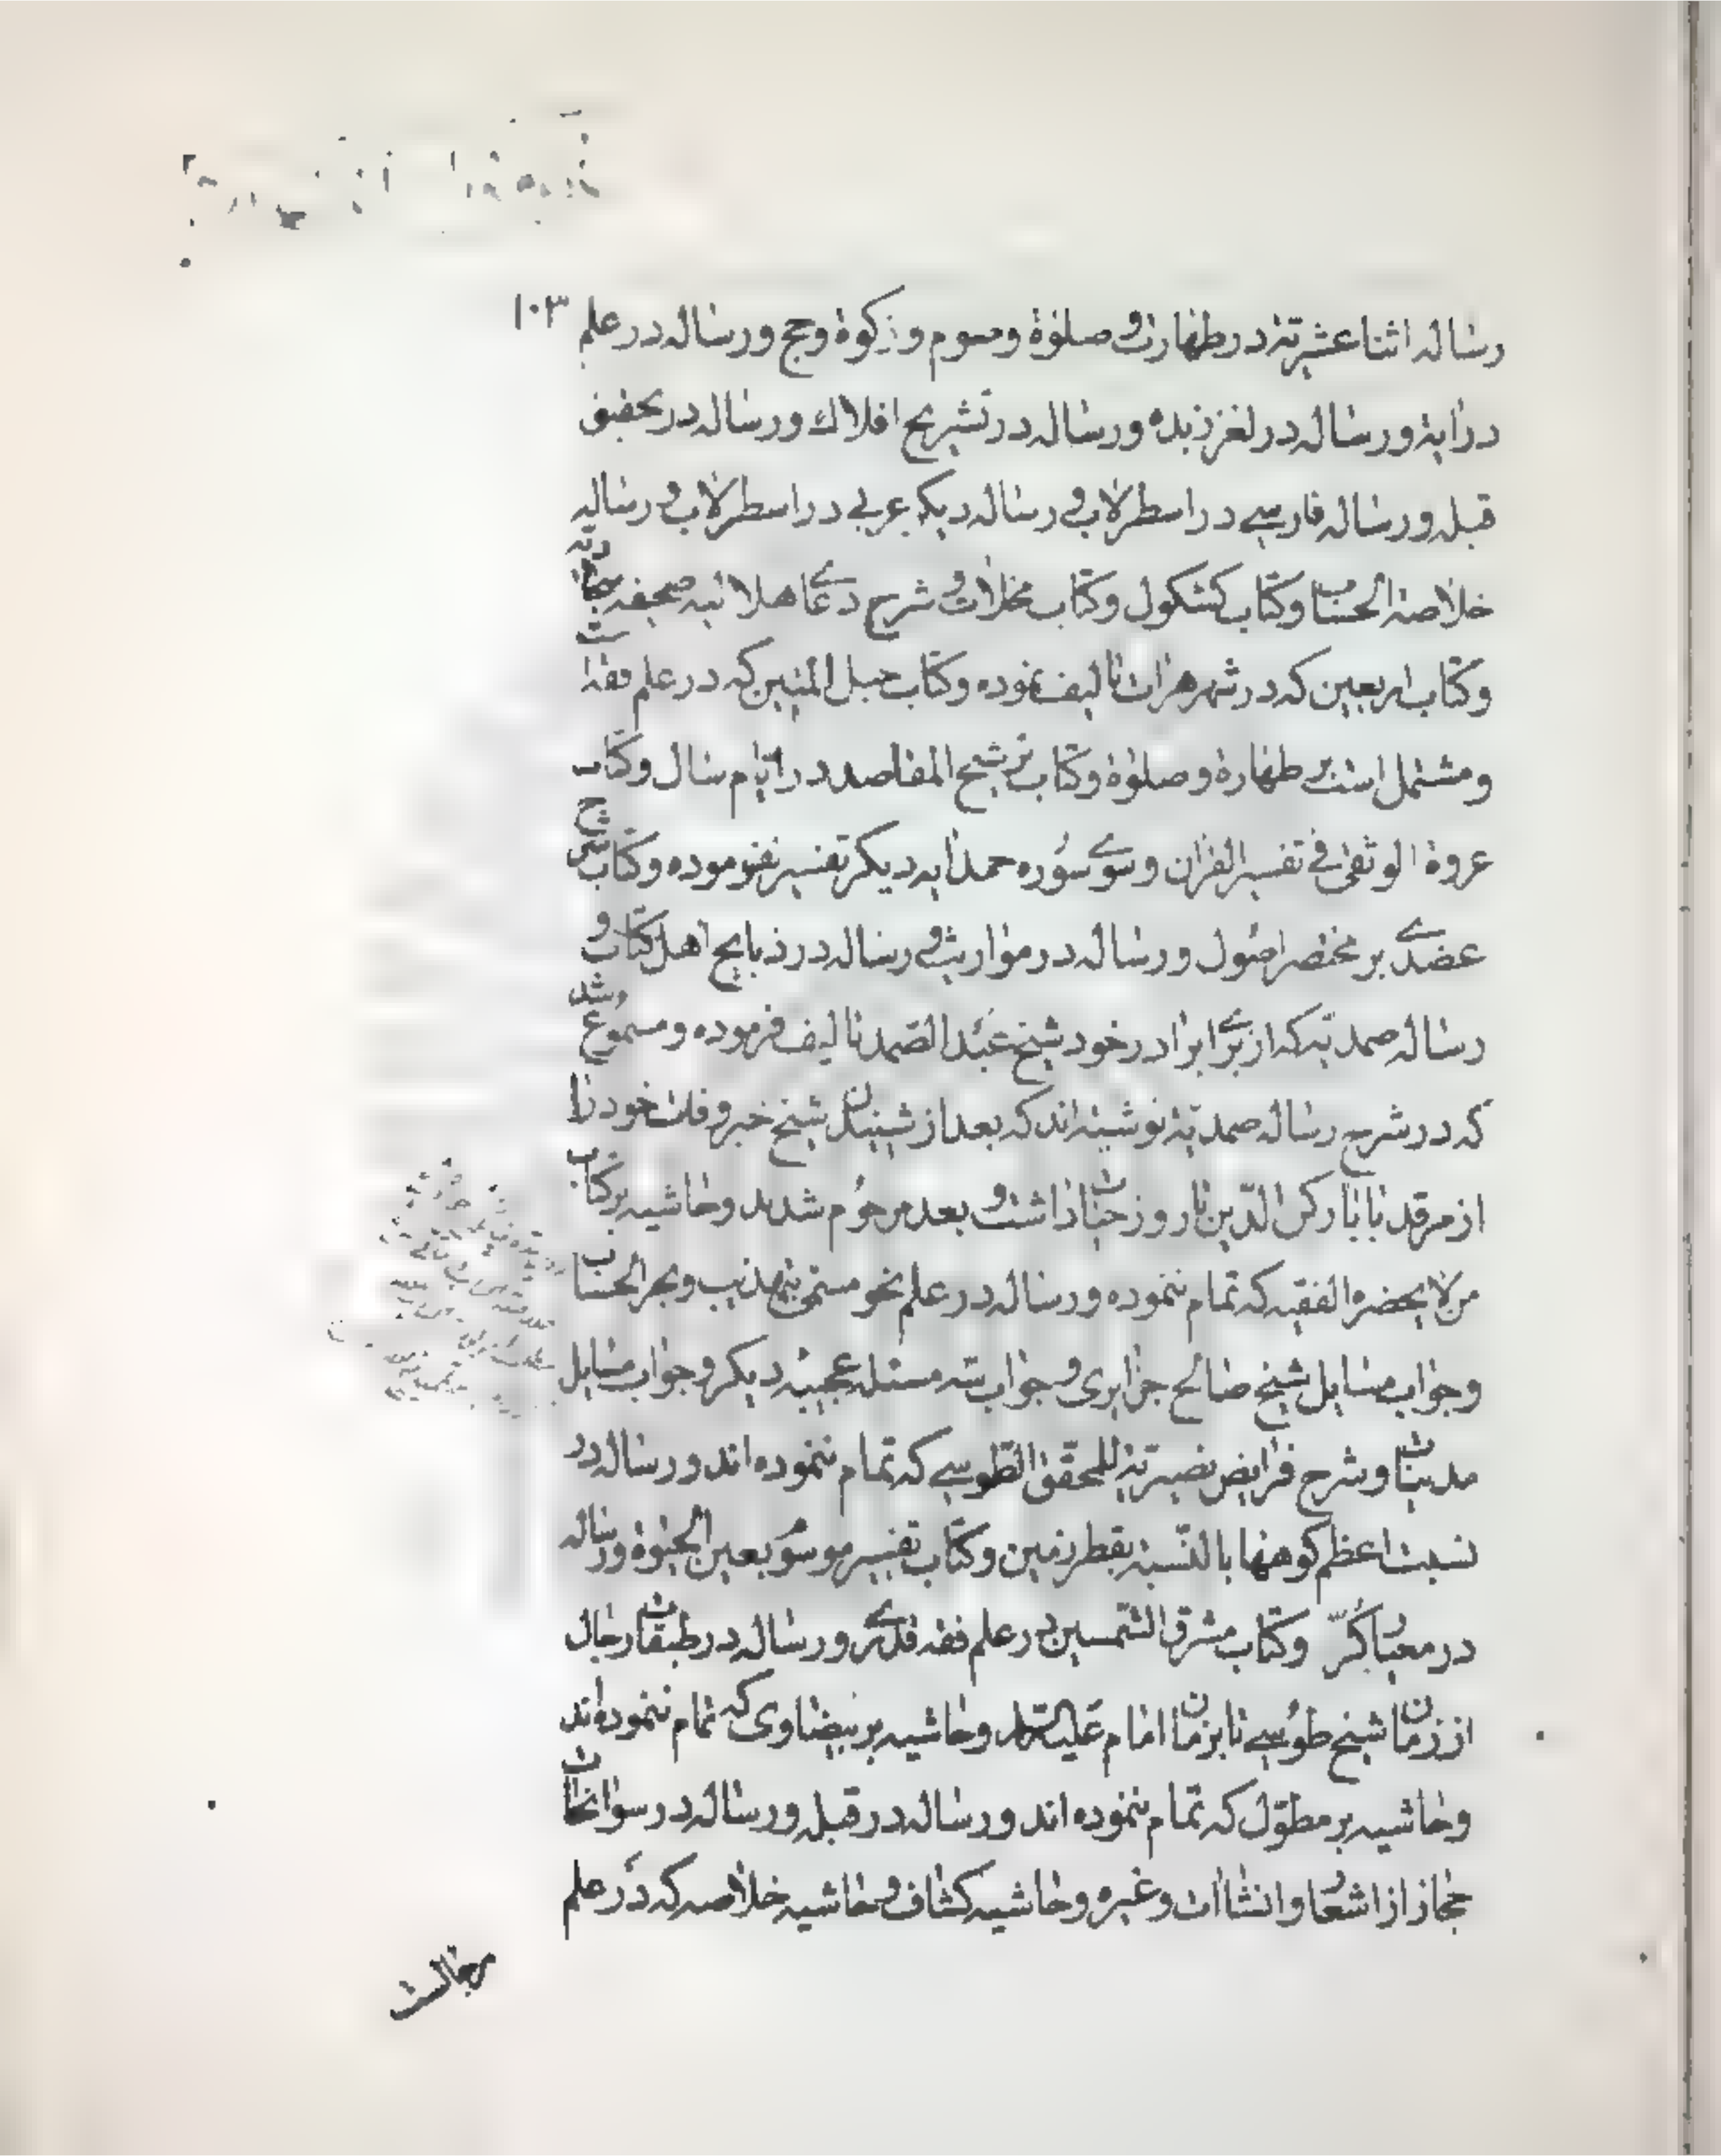 ۱۰۳
رساله اثنا عشریة در طهارت و صلوٰة و صوم و زکوة و حج و رساله در علم
درایة و رساله در لغز زبده و رساله در تشریح افلاك و رساله در تحقیق
قبله و رساله فارسے در اسطرلاب و رساله دیکر عربے در اسطرلاب و رساله
خلاصة الحساب و کتاب کشکول و کتاب مخلات و شرح دعاے هلالیه صحیفه سجادیه
و کتاب اربعین که در شهر هرات تالیف نموده و کتاب حبل المتین که در علم فقه است
و مشتمل است بر طهارة و صلوٰة و کتاب توشیح المقاصد در ایّام سال و کتاب
عروة الوثقی فے تفسیر القران و سوے سوره حمد ایه دیکر تفسیر نفرموده و کتاب شرح
عضدے بر مختصر اصول و رساله در مواریث و رساله در ذبایح اهل کتاب و
رساله صمدیّه که از براے برادر خود شیخ عبد الصّمد تالیف فرموده و مسموع شد
که در شرح رساله صمدیّة نوشته اند که بعد از شنیدن شیخ خبر وفات خود را
از مرقد بابا رکن الدّین تا روز حیات داشت و بعد مرحوم شدید و حاشیه بر کتاب
من لا یحضره الفقیه که تمام ننموده و رساله در علم نحو مسمّی بتهذیب و بحر الحساب
و جواب مسایل شیخ صالح جزایری و جواب سه مسئله عجیبه دیکر و جواب مسایل
مدنیات و شرح فرایض نصیریّة للمحقق الطّوسے که تمام ننموده اند و رساله در
نسبت اعظم کوهها بالنّسبة بقطر زمین و کتاب تفسیر موسوم بعین الحیوة و رساله
در معیار کُرّ و کتاب مشرق الشّمسین در علم فقه قدرے و رساله در طبقات رجال
از زمان شیخ طوسے تا بزمان امام علیه السّلام و حاشیه بر بیضاوی که تمام ننموده اند
و حاشیه بر مطوّل که تمام ننموده اند و رساله در قبله و رساله در سوانحات
حجاز از اشعار و انشاات و غیره و حاشیه کشاف و حاشیه خلاصه که در علم
رجالست